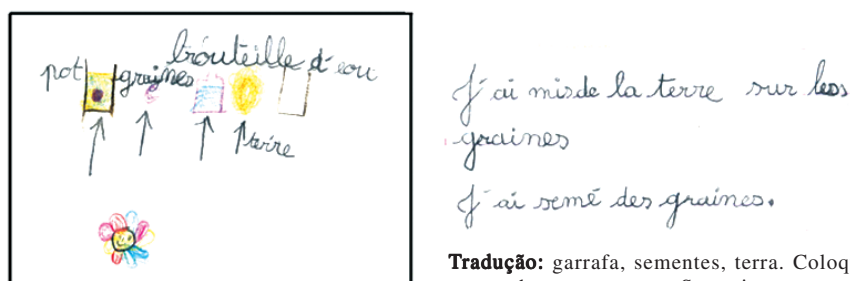 pot graines brouteille d'eau
terre
J'ai mis de la terre sur les
graines
J'ai semé des graines.
Tradução: garrafa, sementes, terra. Coloq